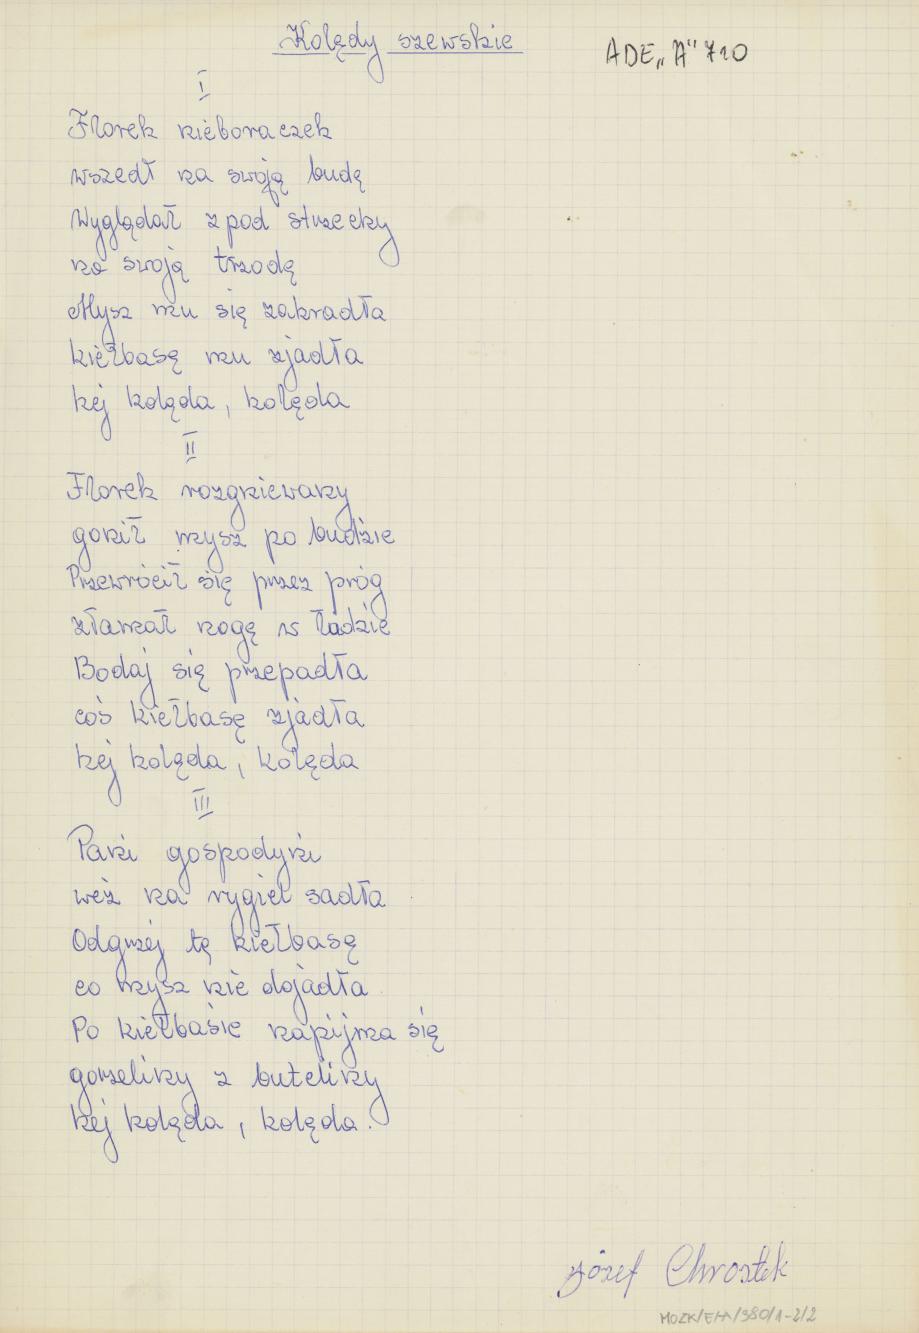 Kolędy szewskie
ADE„A" 710
I
Florek nieboraczek
wszedł na swoją budę
Wyglądał z pod strzecky
na swoją trzodę
Mysz mu się zakradła
kiełbasę mu zjadła
hej kolęda, kolęda
II
Florek rozgniewany
gonił mysz po budzie
Przewrócił się przez próg
złamał nogę w łudzie
Bodaj się przepadła
coś kiełbasę zjadła
hej kolęda, kolęda
III
Pani gospodyni
weź na rygiel sadła
Odgrzej tę kiełbasę
co mysz nie dojadła
Po kiełbasie napijma się
gorzeliny z buteliny
hej kolęda, kolęda.
Józef Chrostek
MOZK/E/A/380/1-2/2